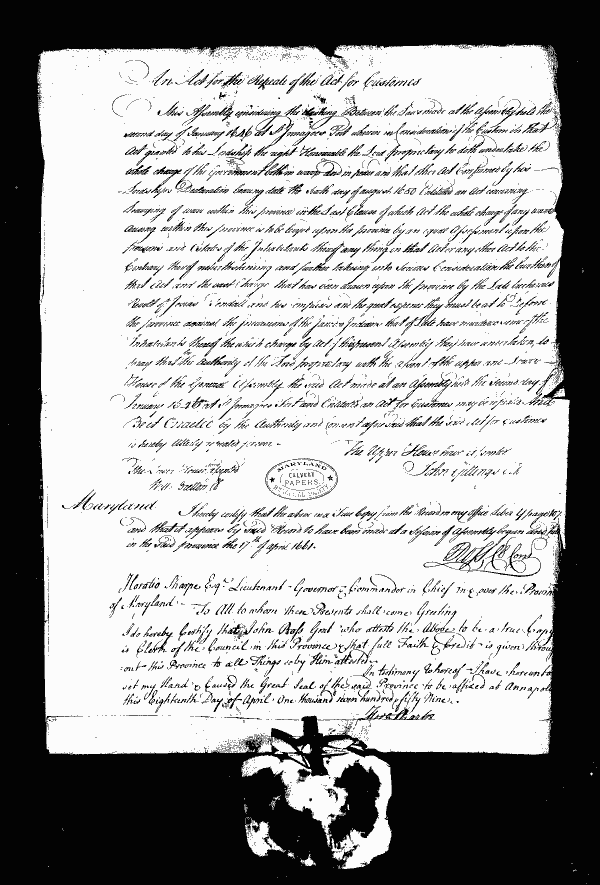 An Act for the Repeale of the Act for Customes
This Assembly considering the clashing Between the Laws made at the Assembly held the
second day of January 1646 at St Jnnagoes Fort wherein in Consideration of the Custom in that
Act granted to his Lordship the right Honourable the Lord proprietary he doth undertake the
whole charge of the Government both in warre and in peace and that other Act Confirmed by his
Lordships Declaration bearing date the Sixth day of august 1650 Entituled an Act concerning
Leavying of warr within this province in the Last Clause of which Act the whole charge of any warr
Arising within this province is to be Leavyed upon the province by an equal Assessment upon the
persons and Estates of the Inhabitants thereof any thing in that Act or any other Act to the
Contrary thereof notwithstanding and further taking into Serious Consideration the burthen of
that Act and the vast Charge that has been drawn upon the province by the Late trecherous
Revolt of Josias Fendall and his complices and the great expence they must be at to defend
the province against the Indians that of Late have murthered some of the
Inhabitants thereof the which charge by Act of this present Assembly they have undertaken, do
pray that the Authority of the Lord proprietary with the assent of the upper and Lower
House of the General Assembly the said Act made at an Assembly held the Second day
January 1646 at St Jnnagoes Fort and Entituled an Act for Customes may be repealed And
Be it Enacted by the Authority and consent aforesaid that the said Act for Customes
is hereby utterly repealed
The Lower House
Will Bretton Clk
The Upper House have assented
John Gittings Clk
MARYLAND
CALVERT
PAPERS.
Maryland I hereby certify that the above is a True Copy from the Record in my office Liber page 107
and that it appears by said Record to have been made at a Session of Assembly began and held
in the said province the 17th of April 1661.
Horatio Sharpe Esqr Lieutenant Governor & Commander in Chief in & over the Province
of Maryland To All to whom these Presents shall come Greeting
I do hereby Certify that John Ross Gent who attests the Above to be a true Copy
is Clerk of the Council in this Province & that full Faith & Credit is given through
out this Province to all Things so by Him attested.
In testimony Whereof I have hereunto
set my Hand & Caused the Great Seal of the said Province to be affixed at Annapolis
this Eighteenth Day of April One thousand seven hundred & fifty Nine.
Horo Sharpe